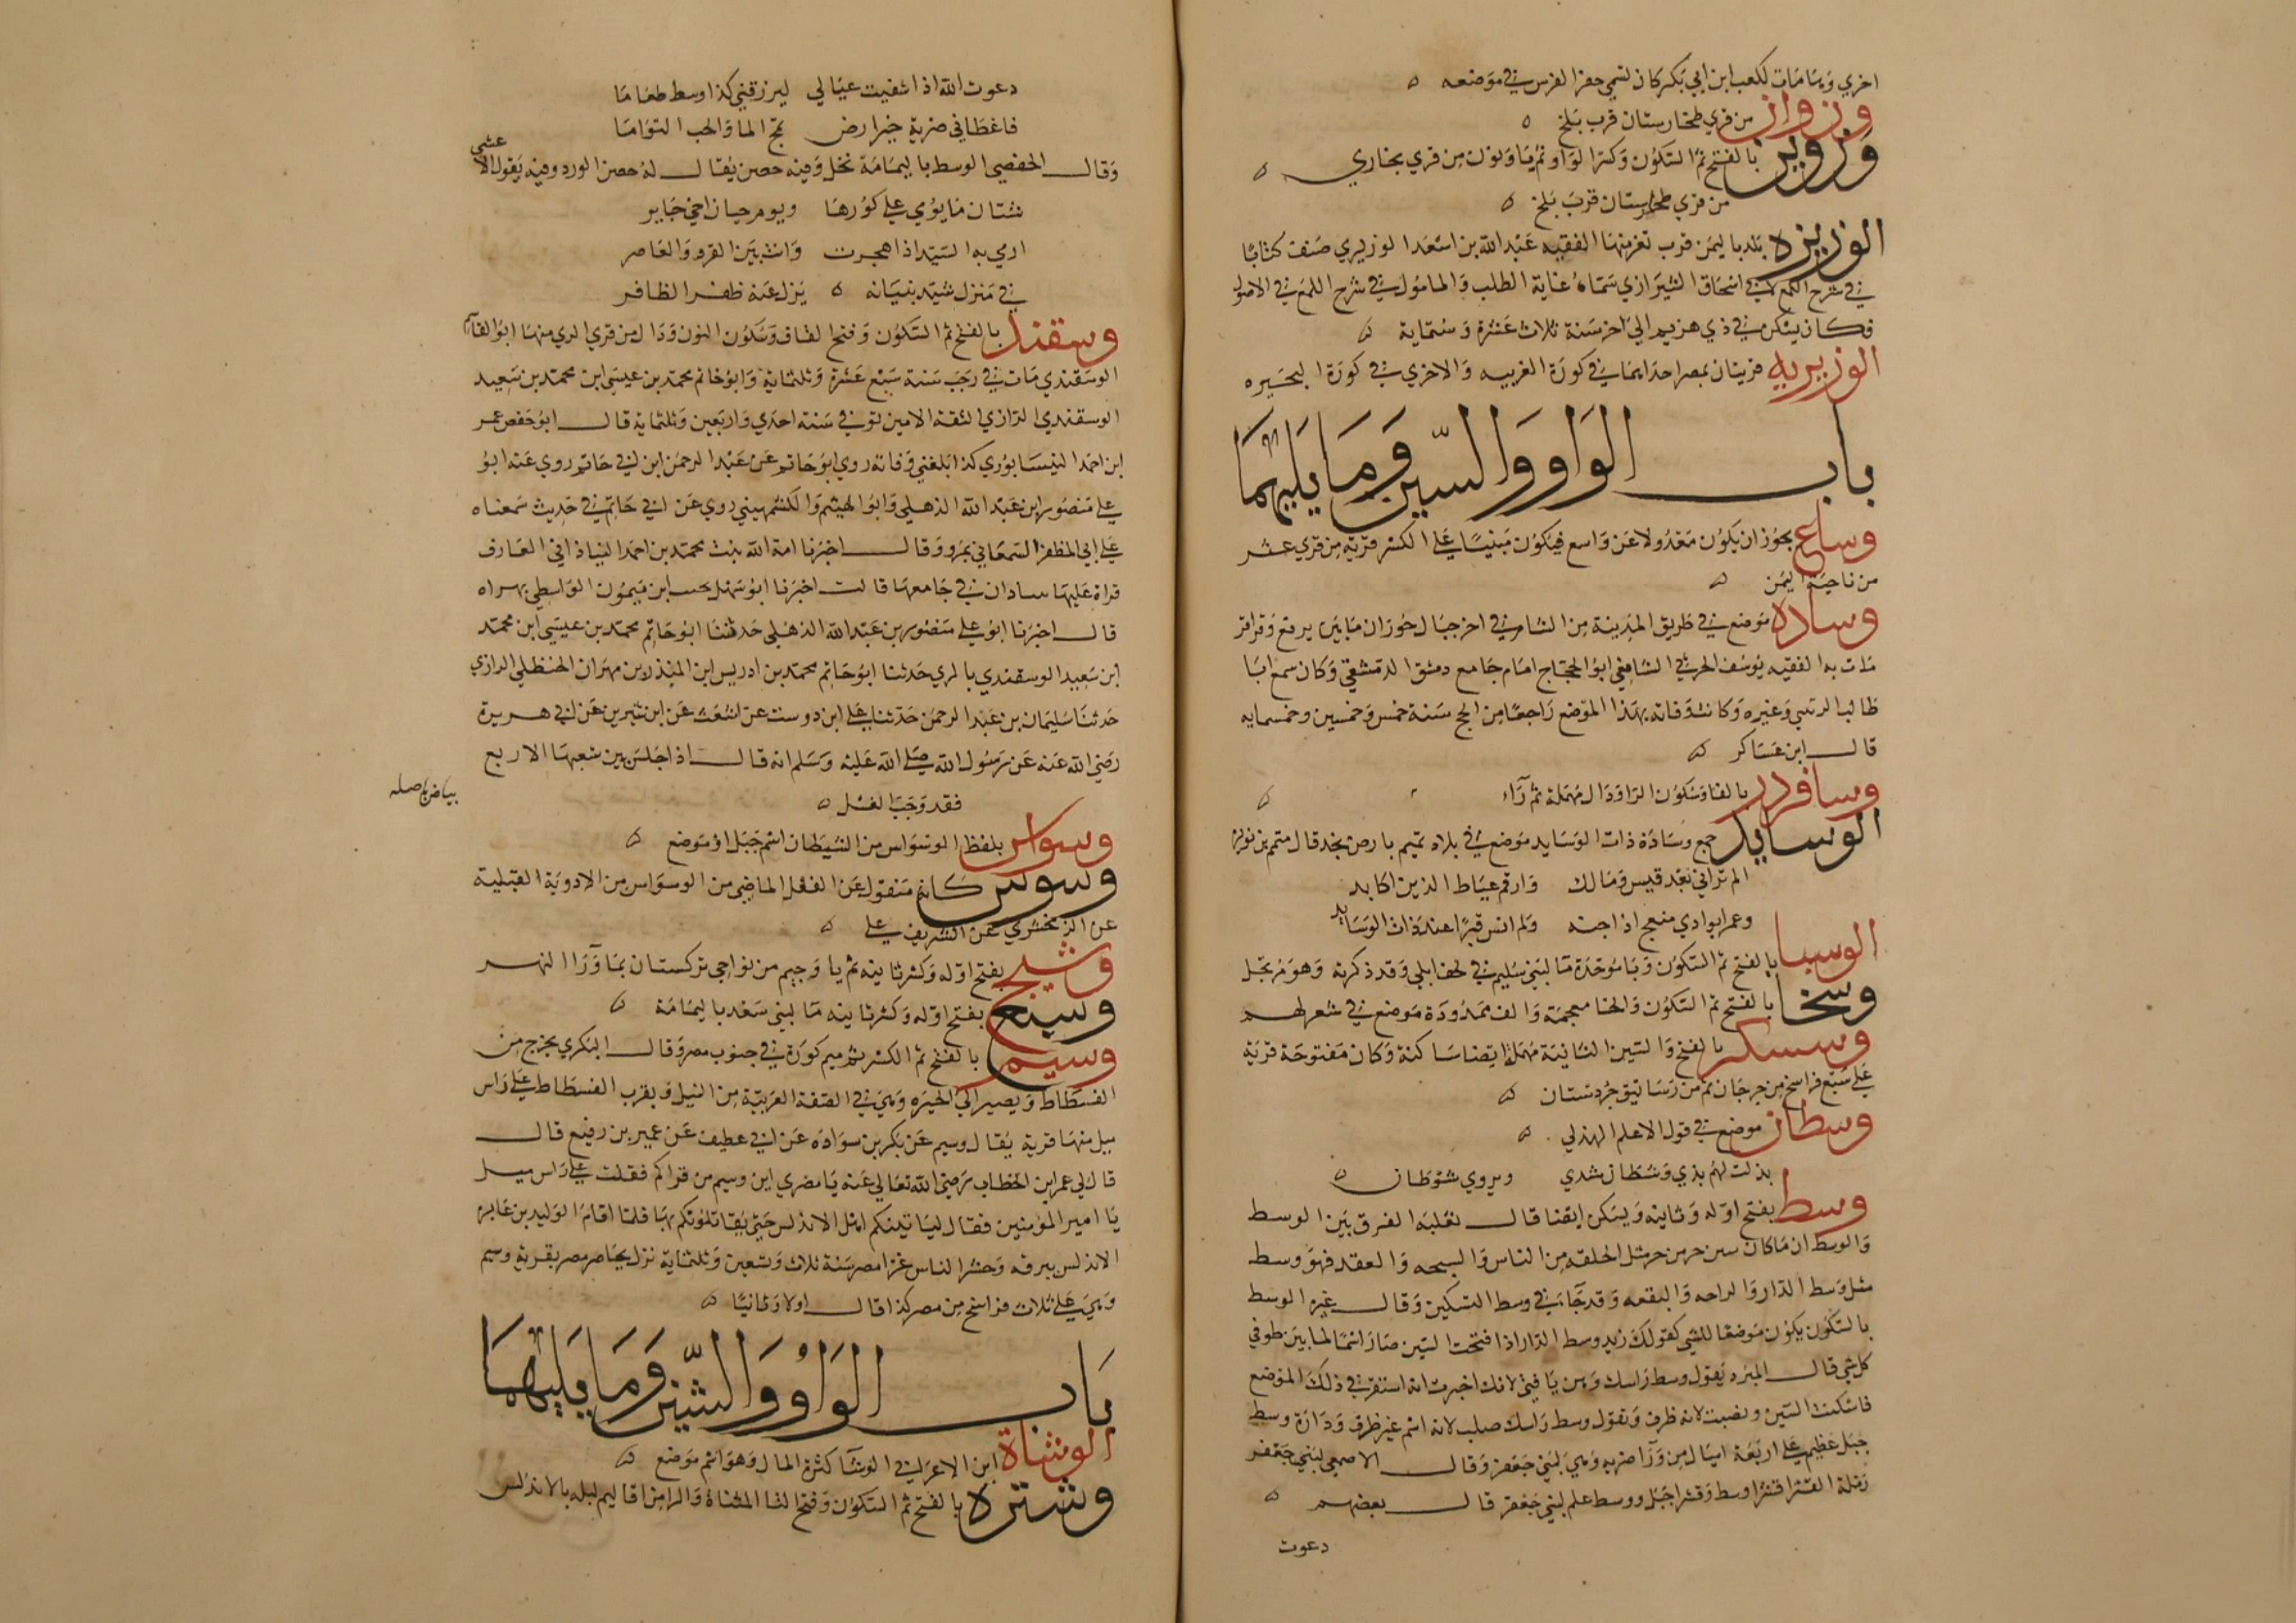 اخري وشامات لكعب ابن ابي بكر كان لتميي حفر الفرس في موضعه
وزوان من قري طخارستان قرب بلخ
وزوين بالفتح ثم السكون وكسر الواو ثم يا ونون من قري بخاري
من قري طخارستان قرب بلخ
الوزيزه بلد باليمن قرب تعز منها الفقيه عبد الله بن اسعد الوزيري صنف كتابا
في شرح اللمع لابي اسحاق الشيرازي سماه غاية الطلب والمامول في شرح اللمع في الاصول
فكان يسكن في ذي هزيم الي اخر سنة ثلاث عشرة وستماية
الوزيريه قريتان بمصر احداهما في كورة الغربيه والاخري في كورة البحيره
باب الواو والسين وما يليهما
وساع يجوز ان يكون معدولا عن واسع فيكون مبنيا علي الكسر قرية من قري عشر
من ناحية اليمن
وساده موضع في طريق المدينة من الشام في اخر جبال حوران ما بين يرفع وقراقر
مات به الفقيه يوسف الحرثي الشافعي ابو الحجاج امام جامع دمشق الدمشقي وكان سمع ابا
طالب الزينبي وغيره وكانت وفاته بهذا الموضع راجعا من الحج سنة خمس وخمسين وخمسمايه
قال ابن عساكر
وسافردر بالفا وسكون الرا ودال مهملة ثم رآء
الوسايد جمع وسادة ذات الوسايد موضع في بلاد تميم بارض نجد قال متمم بن نويرة
الم تراني بعد قيس ومالك وارقم عياط الذين اكابد
وعمرا بوادي منعج اذ اجنه ولم انس قبرا عند ذات الوسايد
الوسبا بالفتح ثم السكون وبا موحدة ما لبني سليم في لحف ابلي وقد ذكرته وهو مرتجل
وسخا بالفتح ثم السكون والخا معجمة والف ممدودة موضع في شعر لهم
وسسكر بالفتح والسين الثانية مهملة ايضا ساكنة وكان مفتوحة قرية
علي سبع فراسخ من جرجان ثم من رساتيق جردستان
وسطان موضع في قول الاعلم الهذلي
بذلت لهم بذي وسطان شدي ويروي شوطان
وسط بفتح اوله وثانيه ويسكن ايضا قال ثعلبه الفرق بين الوسط
والوسط ان ما كان سن حرمن حر مثل الحلقه من الناس والسبحه والعقد فهو وسط
مثل وسط الدار والراحه والبقعه وقد جا في وسط السكين وقال غيره الوسط
بالسكون يكون موضعا للشي كقولك زيد وسط الدار اذا فتحت السين صار اسما لما بين طرفي
كل شي قال المبرد يقول وسط راسك وهن يا فتي لانك اخبرت انه استقر في ذلك الموضع
فاسكنت السين ونصبت لانه ظرف وتقول وسط راسك صلب لانه اسم غير ظرف ودارة وسط
جبل عظيم علي اربعة اميال من ورآ ضريه وهي لبني جعفر وقال الاصمعي لبني جعفر
زقلة القشرا قشرا وسط وقشرا جبل ووسط علم لبني جعفر قال بعضهم
دعوت
دعوت الله اذ اشفيت عيالي ليرزقني كذا وسط طعاما
فاعطاني ضرية خير ارض تمج الما والحب التواما
وقال الحفصي الوسط باليمامة نخل وفيه حصن يقال له حصن الورد وفيه يقول الاعشي
شتان ما يومي علي كورها ويوم حيان اخي جابر
ارمي به السيد اذا هجرت وانت بين القرو والعاصر
في منزل شيد بنيانه يزل عنه ظفر الظافر
وسقند بالفتح ثم السكون وفتح القاف وسكون النون ودال من قري الري منها ابو القاسم
الوسقندي مات في رجب سنة سبع عشرة وثلثماية وابو حاتم محمد بن عيسي ابن محمد بن سعيد
الوسقندي الرازي الثقة الامين توفي سنة احدي واربعين وثلثماية قال ابو حفص عمر
ابن احمد النيسابوري كذا بلغني وفاته روي ابو حاتم عن عبد الرحمن ابن ابي حاتم روي عنه ابو
علي منصور ابن عبد الله الذهلي وابو الهيثم والكشميهني روي عن ابي حاتم في حديث سمعناه
علي ابي المظفر السمعاني بمرو وقال اخبرنا امة الله بنت محمد بن احمد النباذاني العارف
قراة عليها ساذان في جامعها قالت اخبرنا ابو سهل نجيب ابن ميمون الواسطي بهراه
قال اخبرنا ابو علي منصور بن عبد الله الذهلي حدثنا ابو حاتم محمد بن عيسي ابن محمد
ابن سعيد الوسقندي بالري حدثنا ابو حاتم محمد بن ادريس ابن المنذر بن مهران الحنظلي الرازي
حدثنا سليمان بن عبد الرحمن حدثنا علي ابن دوست عن اشعث عن ابن سيرين عن ابي هريرة
رضي الله عنه عن رسول الله صلي الله عليه وسلم انه قال اذا جلس بين شعبها الاربع
بياض باصله
فقد وجب الغسل
وسواس بلفظ الوسواس من الشيطان اسم جبل او موضع
وسوس كانه منقول عن الفعل الماضي من الوسواس من الاودية القبلية
عن الزمخشري عن الشريف علي
وسيج بفتح اوله وكسر ثانيه ثم يا وجيم من نواحي تركستان بما ورآ النهر
وسيع بفتح اوله وكسر ثانيه ما لبني سعد باليمامة
وسيم بالفتح ثم الكسر ثم ميم كورة في جنوب مصر وقال البكري يخرج من
الفسطاط ويصير الي الجيزه وهي في الضفة الغربية من النيل وبقرب الفسطاط علي راس
ميل منها قرية يقال وسيم عن بكر بن سوادة عن ابي عطيف عن عمير بن رفيع قال
قال لي عمر ابن الخطاب رضي الله تعالي عنه يا مصري اين وسيم من قراكم فقلت علي راس ميل
يا امير المؤمنين فقال لياتينكم اهل الاندلس حتي يقاتلونكم بها فلما اقام الوليد بن عابر
الاندلس ببرقه وحشر الناس غزا مصر سنة ثلاث وتسعين وثلثماية نزل يحاصر مصر بقرية وسيم
وهي علي ثلاث فراسخ من مصر كذا قال اولا وثانيا
باب الواو والشين وما يليهما
الوشاة ابن الاعرابي الوشآ كثرة المال وهو اسم موضع
وشتره بالفتح ثم السكون وفتح التا المثناة والرا من اقاليم لبله بالاندلس